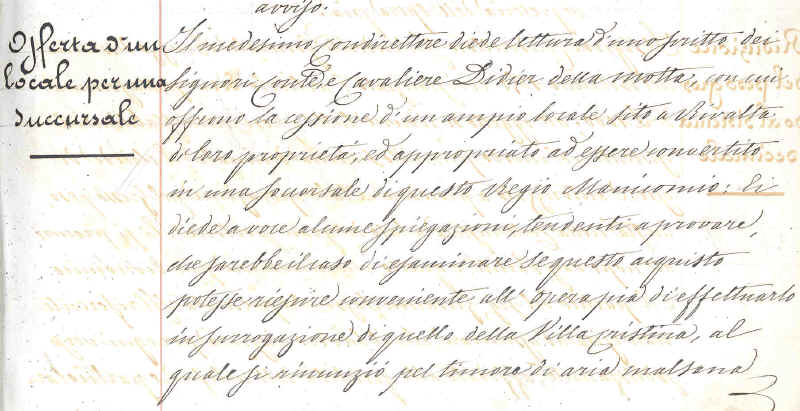 avviso.
Offerta d'un
locale per una
succursale
Il medesimo Condirettore diede lettura d'uno scritto dei
Signori Conte, e Cavaliere Didier della Motta, con cui
offrono la cessione d'un ampio locale sito a Rivalta
di loro proprietà, ed appropriato ad essere convertito
in una socursale di questo Regio Manicomio: Ei
diede a voce alcune spiegazioni, tendenti a provare,
che sarebbe il caso di esaminare se questo acquisto
potesse riescire conveniente all'opera pia di effettuarlo
in surrogazione di quello della Villa Cristina, al
quale si rinunziò pel timore di aria malsana